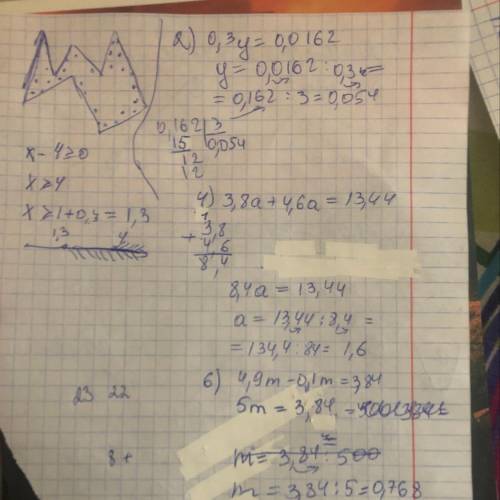 2) 0,3y = 0,0162
y = 0,0162 : 0,3 =
= 0,162 : 3 = 0,054
0,162 | 3
15 0,054
12
12
x - 4 ≥ 0
x ≥ 4
x ≥ 1 + 0,4 = 1,3
1,3 4
4) 3,8a + 4,6a = 13,44
1
+ 3,8
4,6
8,4
8,4a = 13,44
a = 13,44 : 8,4 =
= 134,4 : 84 = 1,6
6) 4,9m - 0,1m = 3,84
5m = 3,84
m = 3,84 : 500
m = 3,84 : 5 = 0,768
23 22
8 +